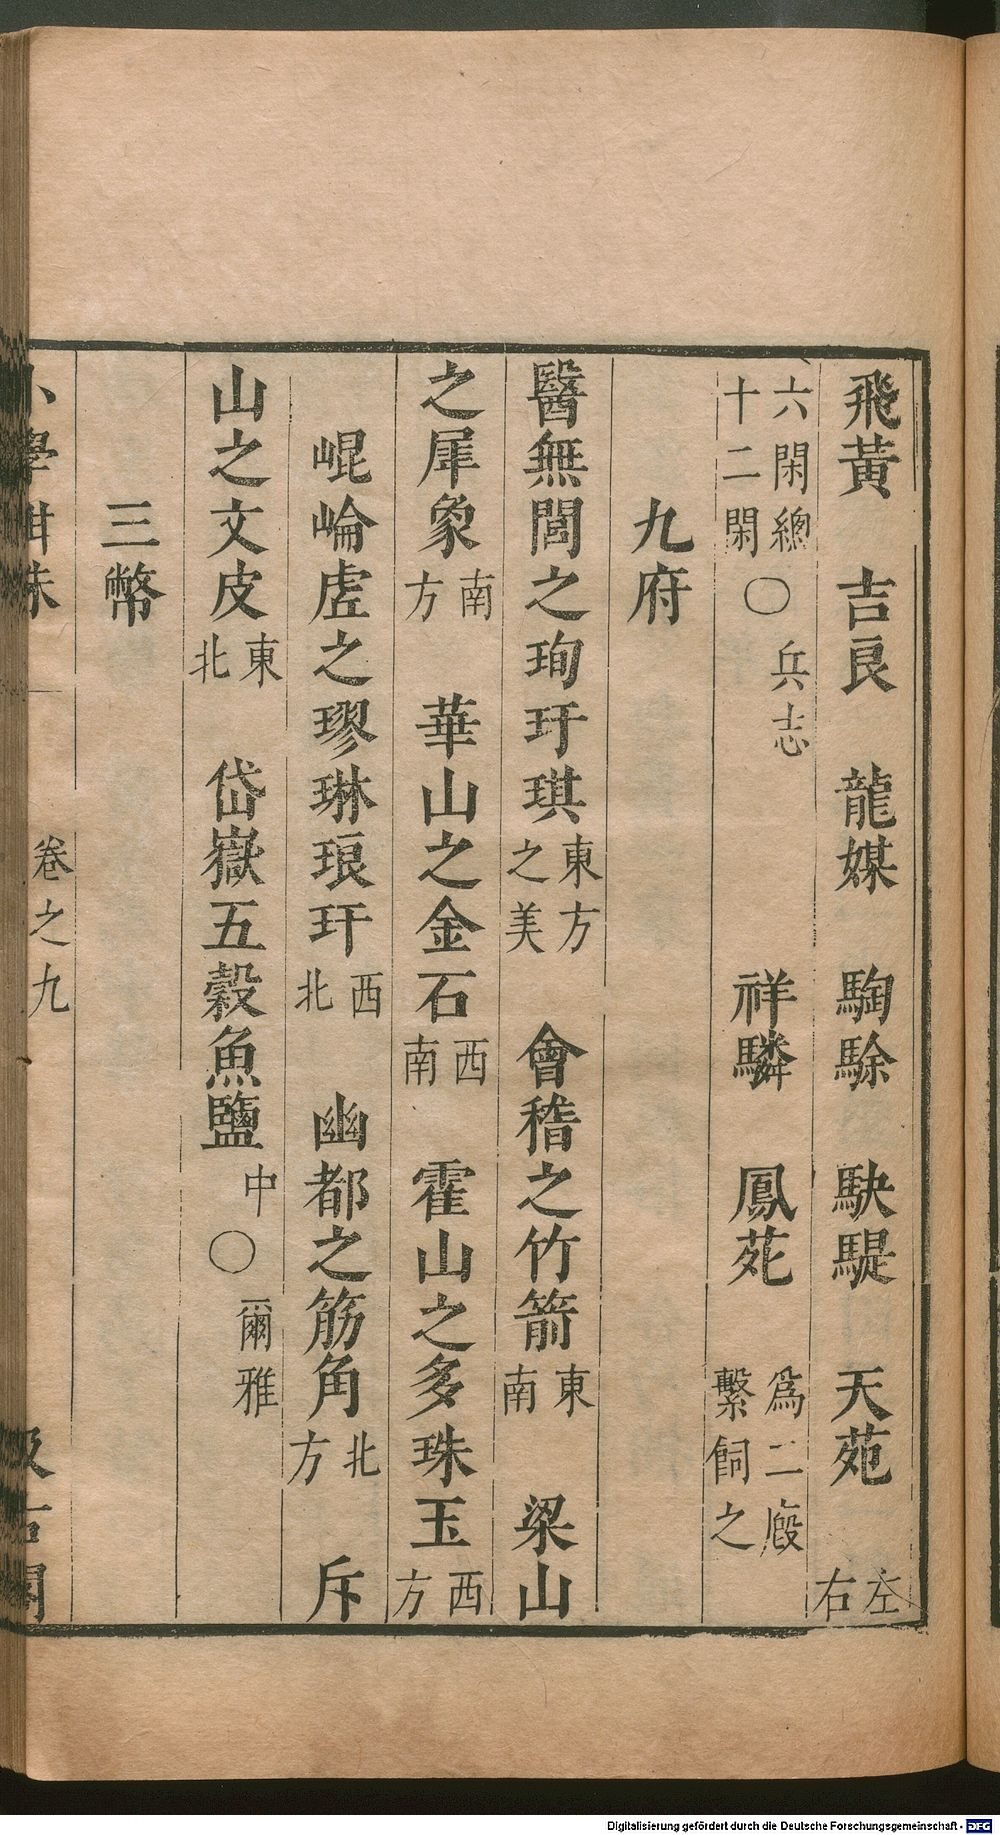 飛黃　吉良　龍媒　騊駼　駃騠　天苑　左右
六閑總十二閑〇兵志　祥驎　鳳苑　爲二廄繫飼之
九府
醫無閭之珣玗琪東方之美　會稽之竹箭東南　梁山
之犀象南方　華山之金石西南　霍山之多珠玉西方
崐崘虗之璆琳琅玕西北　幽都之筋角北方　斥
山之文皮東北　岱嶽五穀魚鹽中〇爾雅
三幣
小學紺珠　卷之九　汲古閣
Digitalisierung gefördert durch die Deutsche Forschungsgemeinschaft - DFG